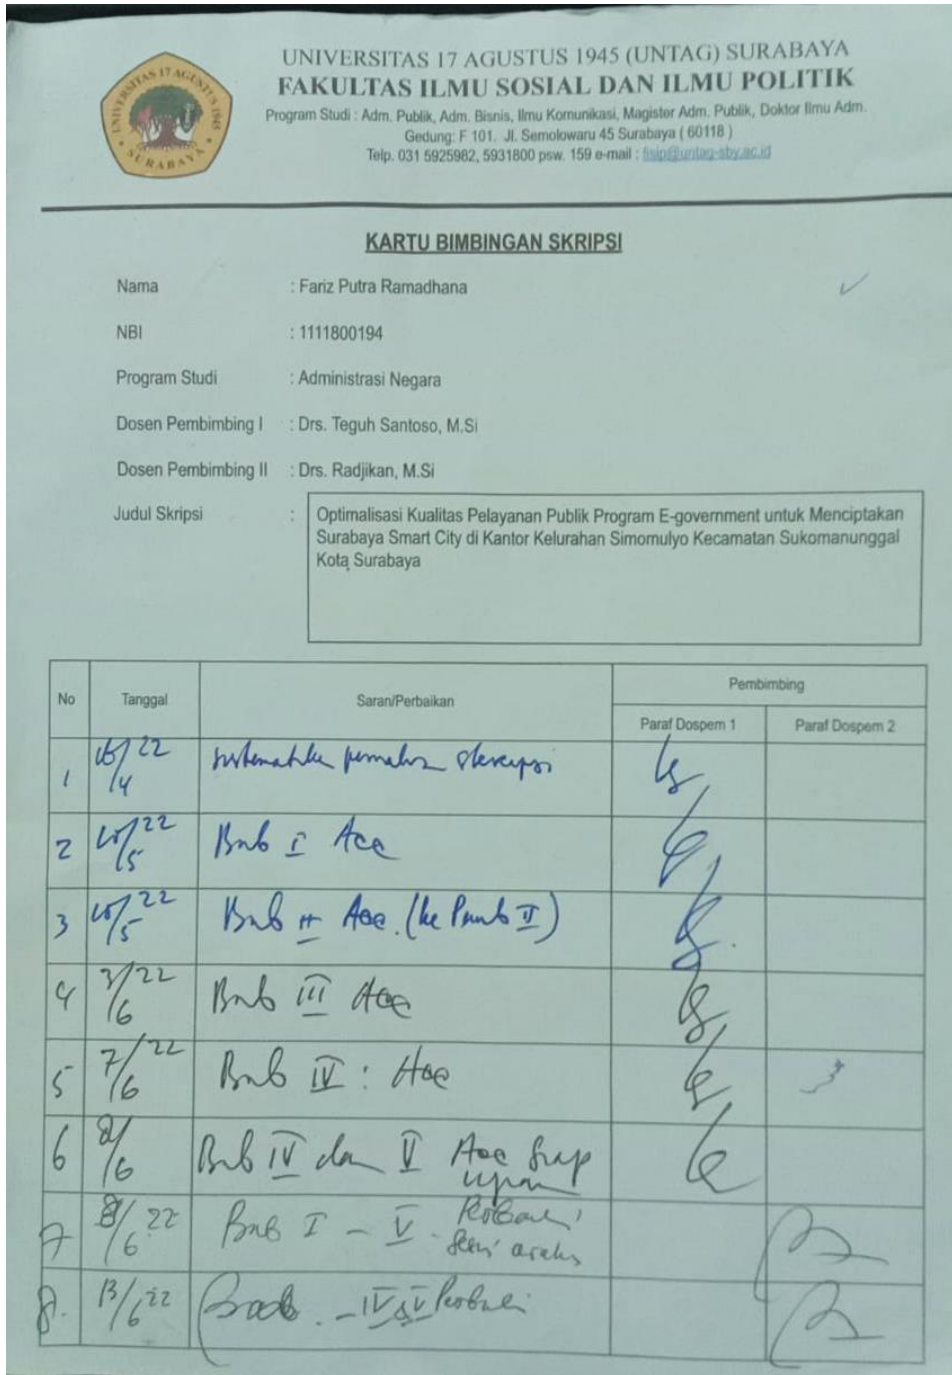 UNIVERSITAS 17 AGUSTUS 1945 (UNTAG) SURABAYA
FAKULTAS ILMU SOSIAL DAN ILMU POLITIK
Program Studi : Adm. Publik, Adm. Bisnis, Ilmu Komunikasi, Magister Adm. Publik, Doktor Ilmu Adm.
Gedung: F 101. Jl. Semolowaru 45 Surabaya ( 60118 )
Telp. 031 5925982, 5931800 psw. 159 e-mail : fisip@untag-sby.ac.id
UNIVERSITAS 17 AGUSTUS 1945
SURABAYA
KARTU BIMBINGAN SKRIPSI
Nama : Fariz Putra Ramadhana
NBI : 1111800194
Program Studi : Administrasi Negara
Dosen Pembimbing I : Drs. Teguh Santoso, M.Si
Dosen Pembimbing II : Drs. Radjikan, M.Si
Judul Skripsi : Optimalisasi Kualitas Pelayanan Publik Program E-government untuk Menciptakan
Surabaya Smart City di Kantor Kelurahan Simomulyo Kecamatan Sukomanunggal
Kota Surabaya
No Tanggal Saran/Perbaikan Pembimbing
Paraf Dospem 1 Paraf Dospem 2
1 /4 22
2 /5 22 Bab I Acc
3 /5 22 Bab II Acc. (ke Pemb II)
4 3/6 22 Bab III Acc
5 7/6 22 Bab IV : Acc
6 8/6 Bab IV dan V Acc Siap
ujian
7 8/6 22 Bab I - V
8. 13/6 22 - IV & V